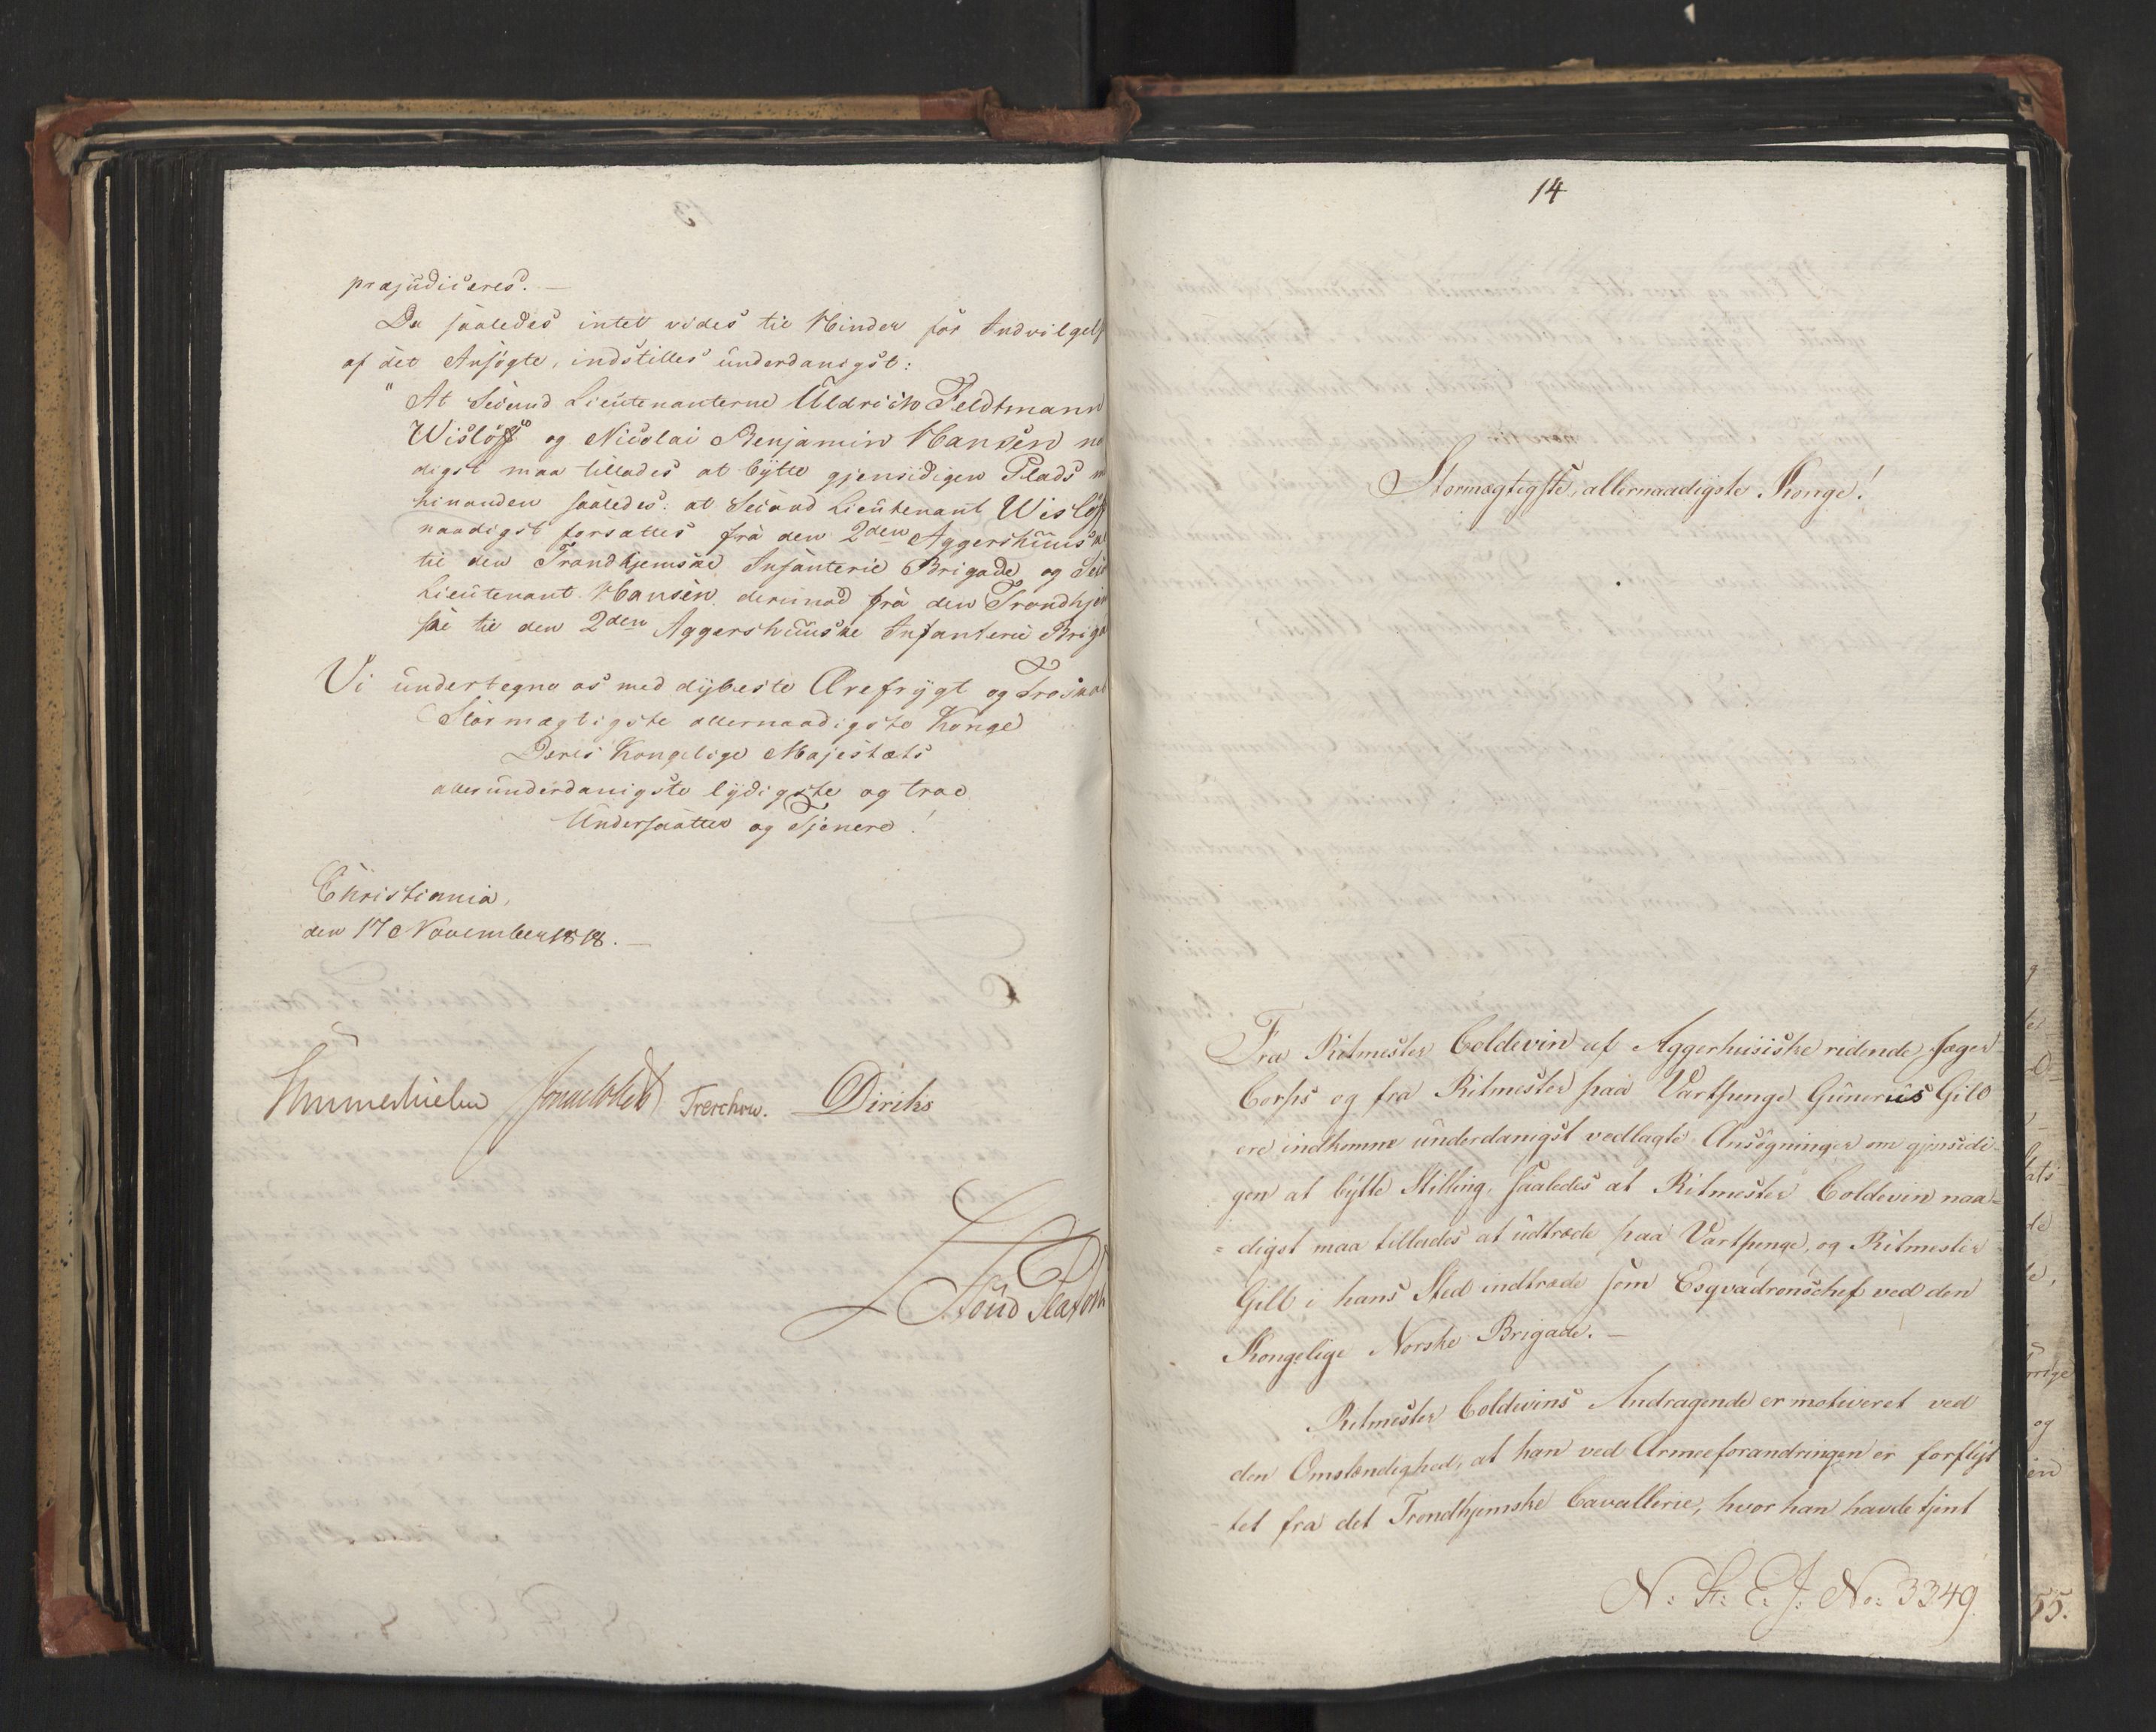 præjudiceres. —
Da saaledes intet vides til Hinder for Indvilgels
af det Ansøgte, indstilles underdanigst:
"At Second Lieutenanterne Uldrich Feldtmann
Wisløff og Nicolai Benjamin Hansen na
digst maa tillades at bytte gjensidigen Plads m
hinanden saaledes: at Second Lieutenant Wisløff
naadigst forsættes fra den 2den Aggershuusk
til den Trondhjemske Infanterie Brigade og Sec
Lieutenant Hansen derimod fra den Trondhjem
ske til den 2den Aggershuuske Infanterie Briga
Vi undertegne os med dybeste Ærefrygt og Troskab
Stormægtigste allernaadigste Konge
Deres Kongelige Majestæts
allerunderdanigste lydigste og troe
Undersaatter og Tjenere!
Christiania,
den 17 November 1818. —
Hammelhielm Treschow. Diriks
14
Stormægtigste, allernaadigste Konge!
Fra Ritmester Coldevin af Aggerhusiske ridende Jæger
Corps og fra Ritmester paa Vartpenge Gunerius Gill
ere indkomne underdanigst vedlagte Ansøgninger om gjensidi-
gen at bytte Stilling, saaledes at Ritmester Coldevin naa-
= digst maa tillades at udtræde paa Vartpenge, og Ritmester
Gill i hans Sted indtræde som Esqvadronschef ved den
Kongelige Norske Brigade. —
Ritmester Coldevins Andragende er motiveret ved
den Omstændighed, at han ved Armeeforandringen er forflyt
-tet fra det Trondhjemske Cavallerie, hvor han havde tjent
N: St: E: J: No: 3349
55.